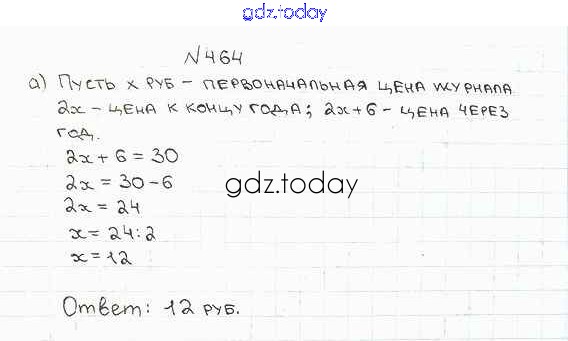 gdz.today
№464
а) Пусть x руб – первоначальная цена журнала
2x – цена к концу года; 2x+6 – цена через
год.
2x + 6 = 30
2x = 30-6
gdz.today
2x = 24
x = 24:2
x = 12
Ответ: 12 руб.